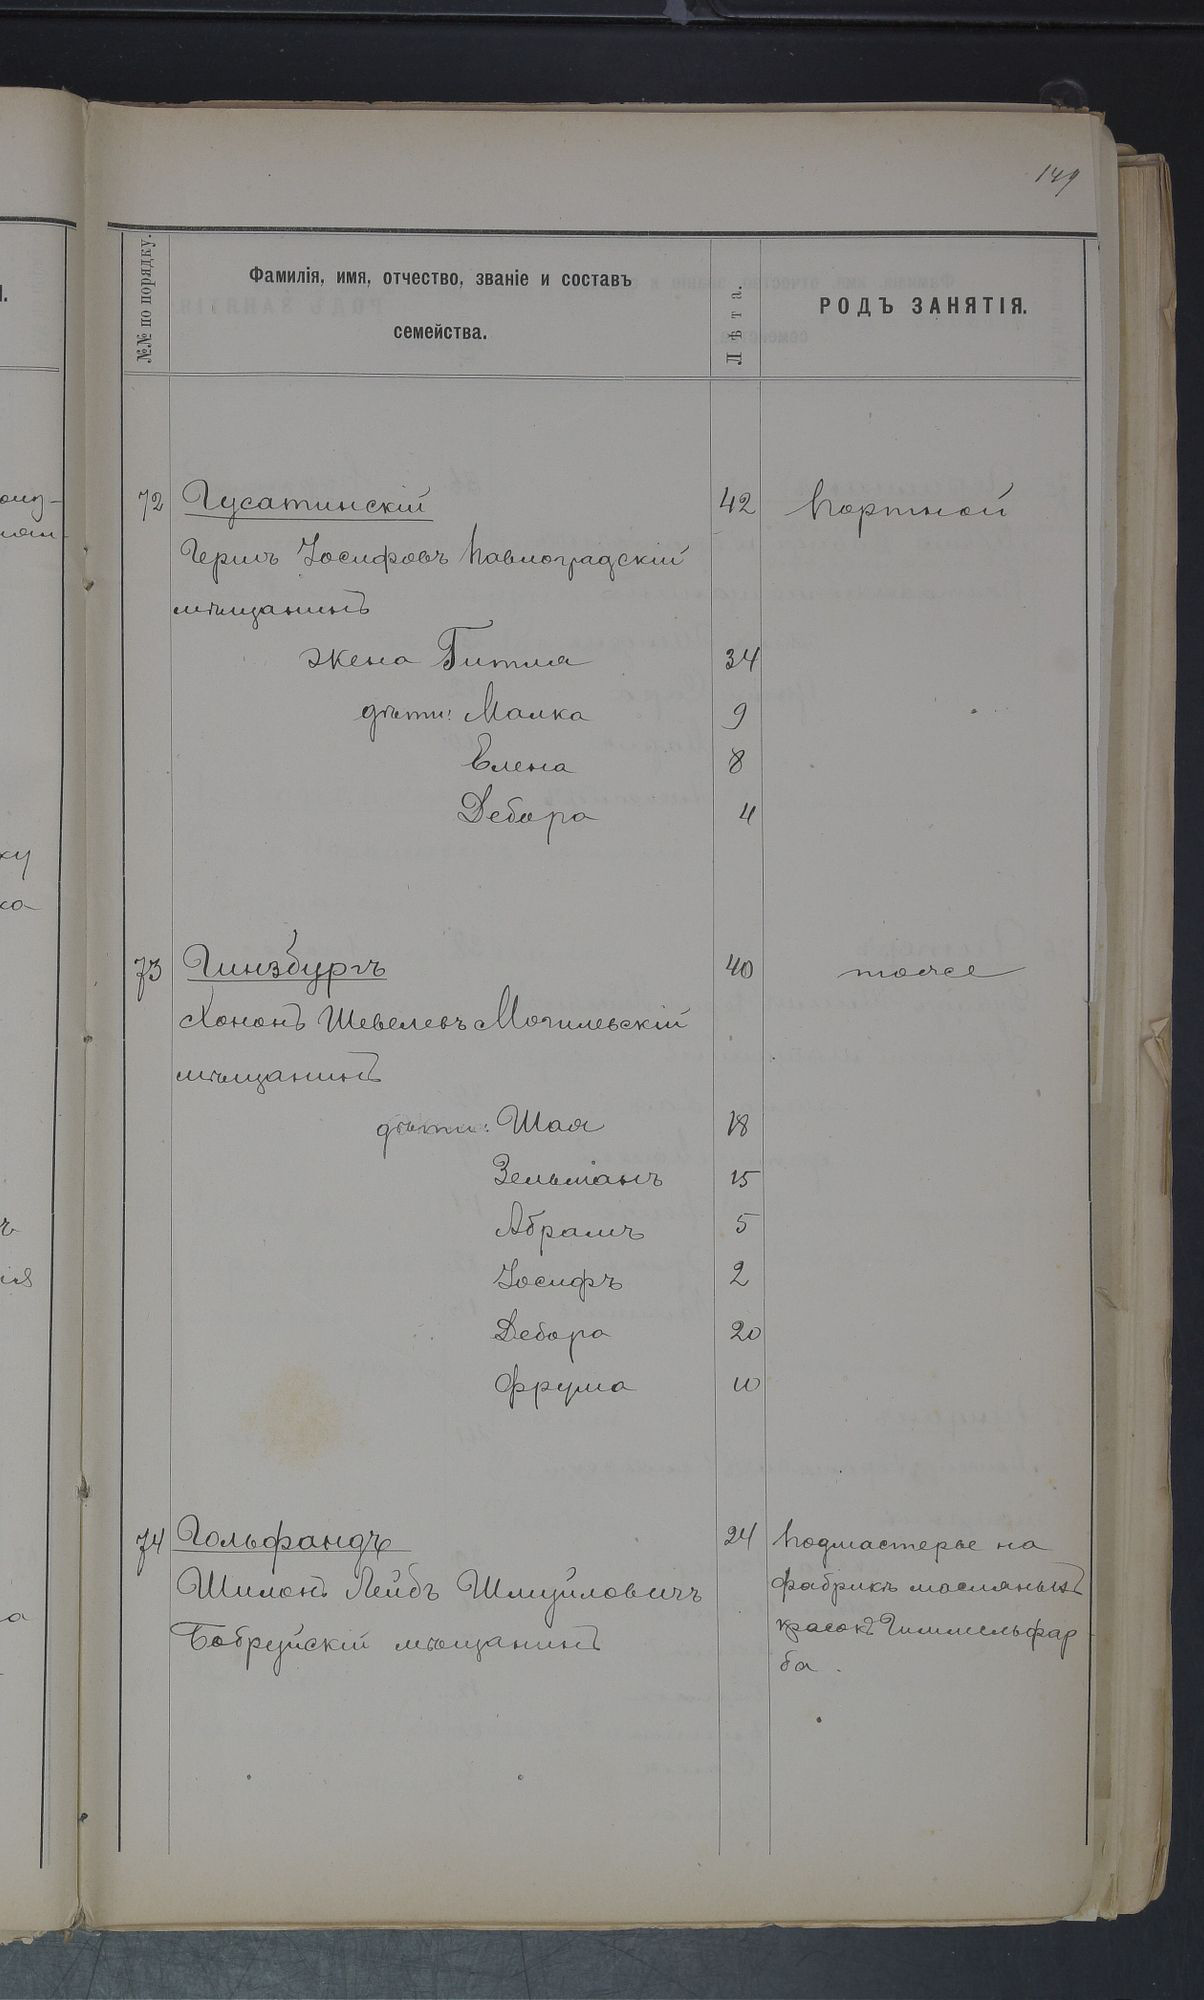 149
№№ по порядку.
Фамилія, имя, отчество, званіе и составъ
семейства.
Лѣта.
РОДЪ ЗАНЯТІЯ.
72 Гусатинскій 42 Портной
Герш Іосифовъ Павлоградскій
мѣщанинъ
жена Гитля 34
дѣти: Малка 9
Елена 8
Дебора 4
73 Гинзбургъ 40 тоже
Хононъ Шевелевъ Могилевскій
мѣщанинъ
дѣти: Шая 18
Зельманъ 15
Абрамъ 5
Іосифъ 2
Дебора 20
Фрума 10
74 Гольфандъ 24 Подмастерье на
Шимонъ Лейбъ Шмуйловичъ фабрикѣ масляныхъ
Бобруйскій мѣщанинъ красокъ Гиммельфар
ба.